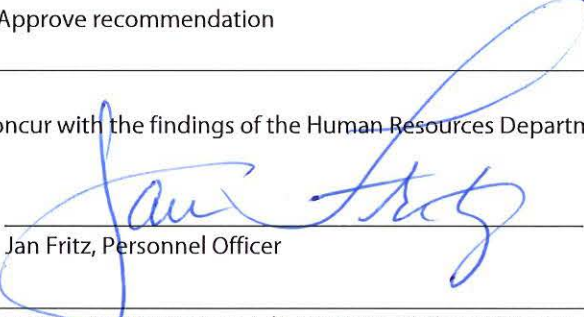 Approve recommendation
oncur with the findings of the Human Resources Departm
Jan Fritz
Jan Fritz, Personnel Officer